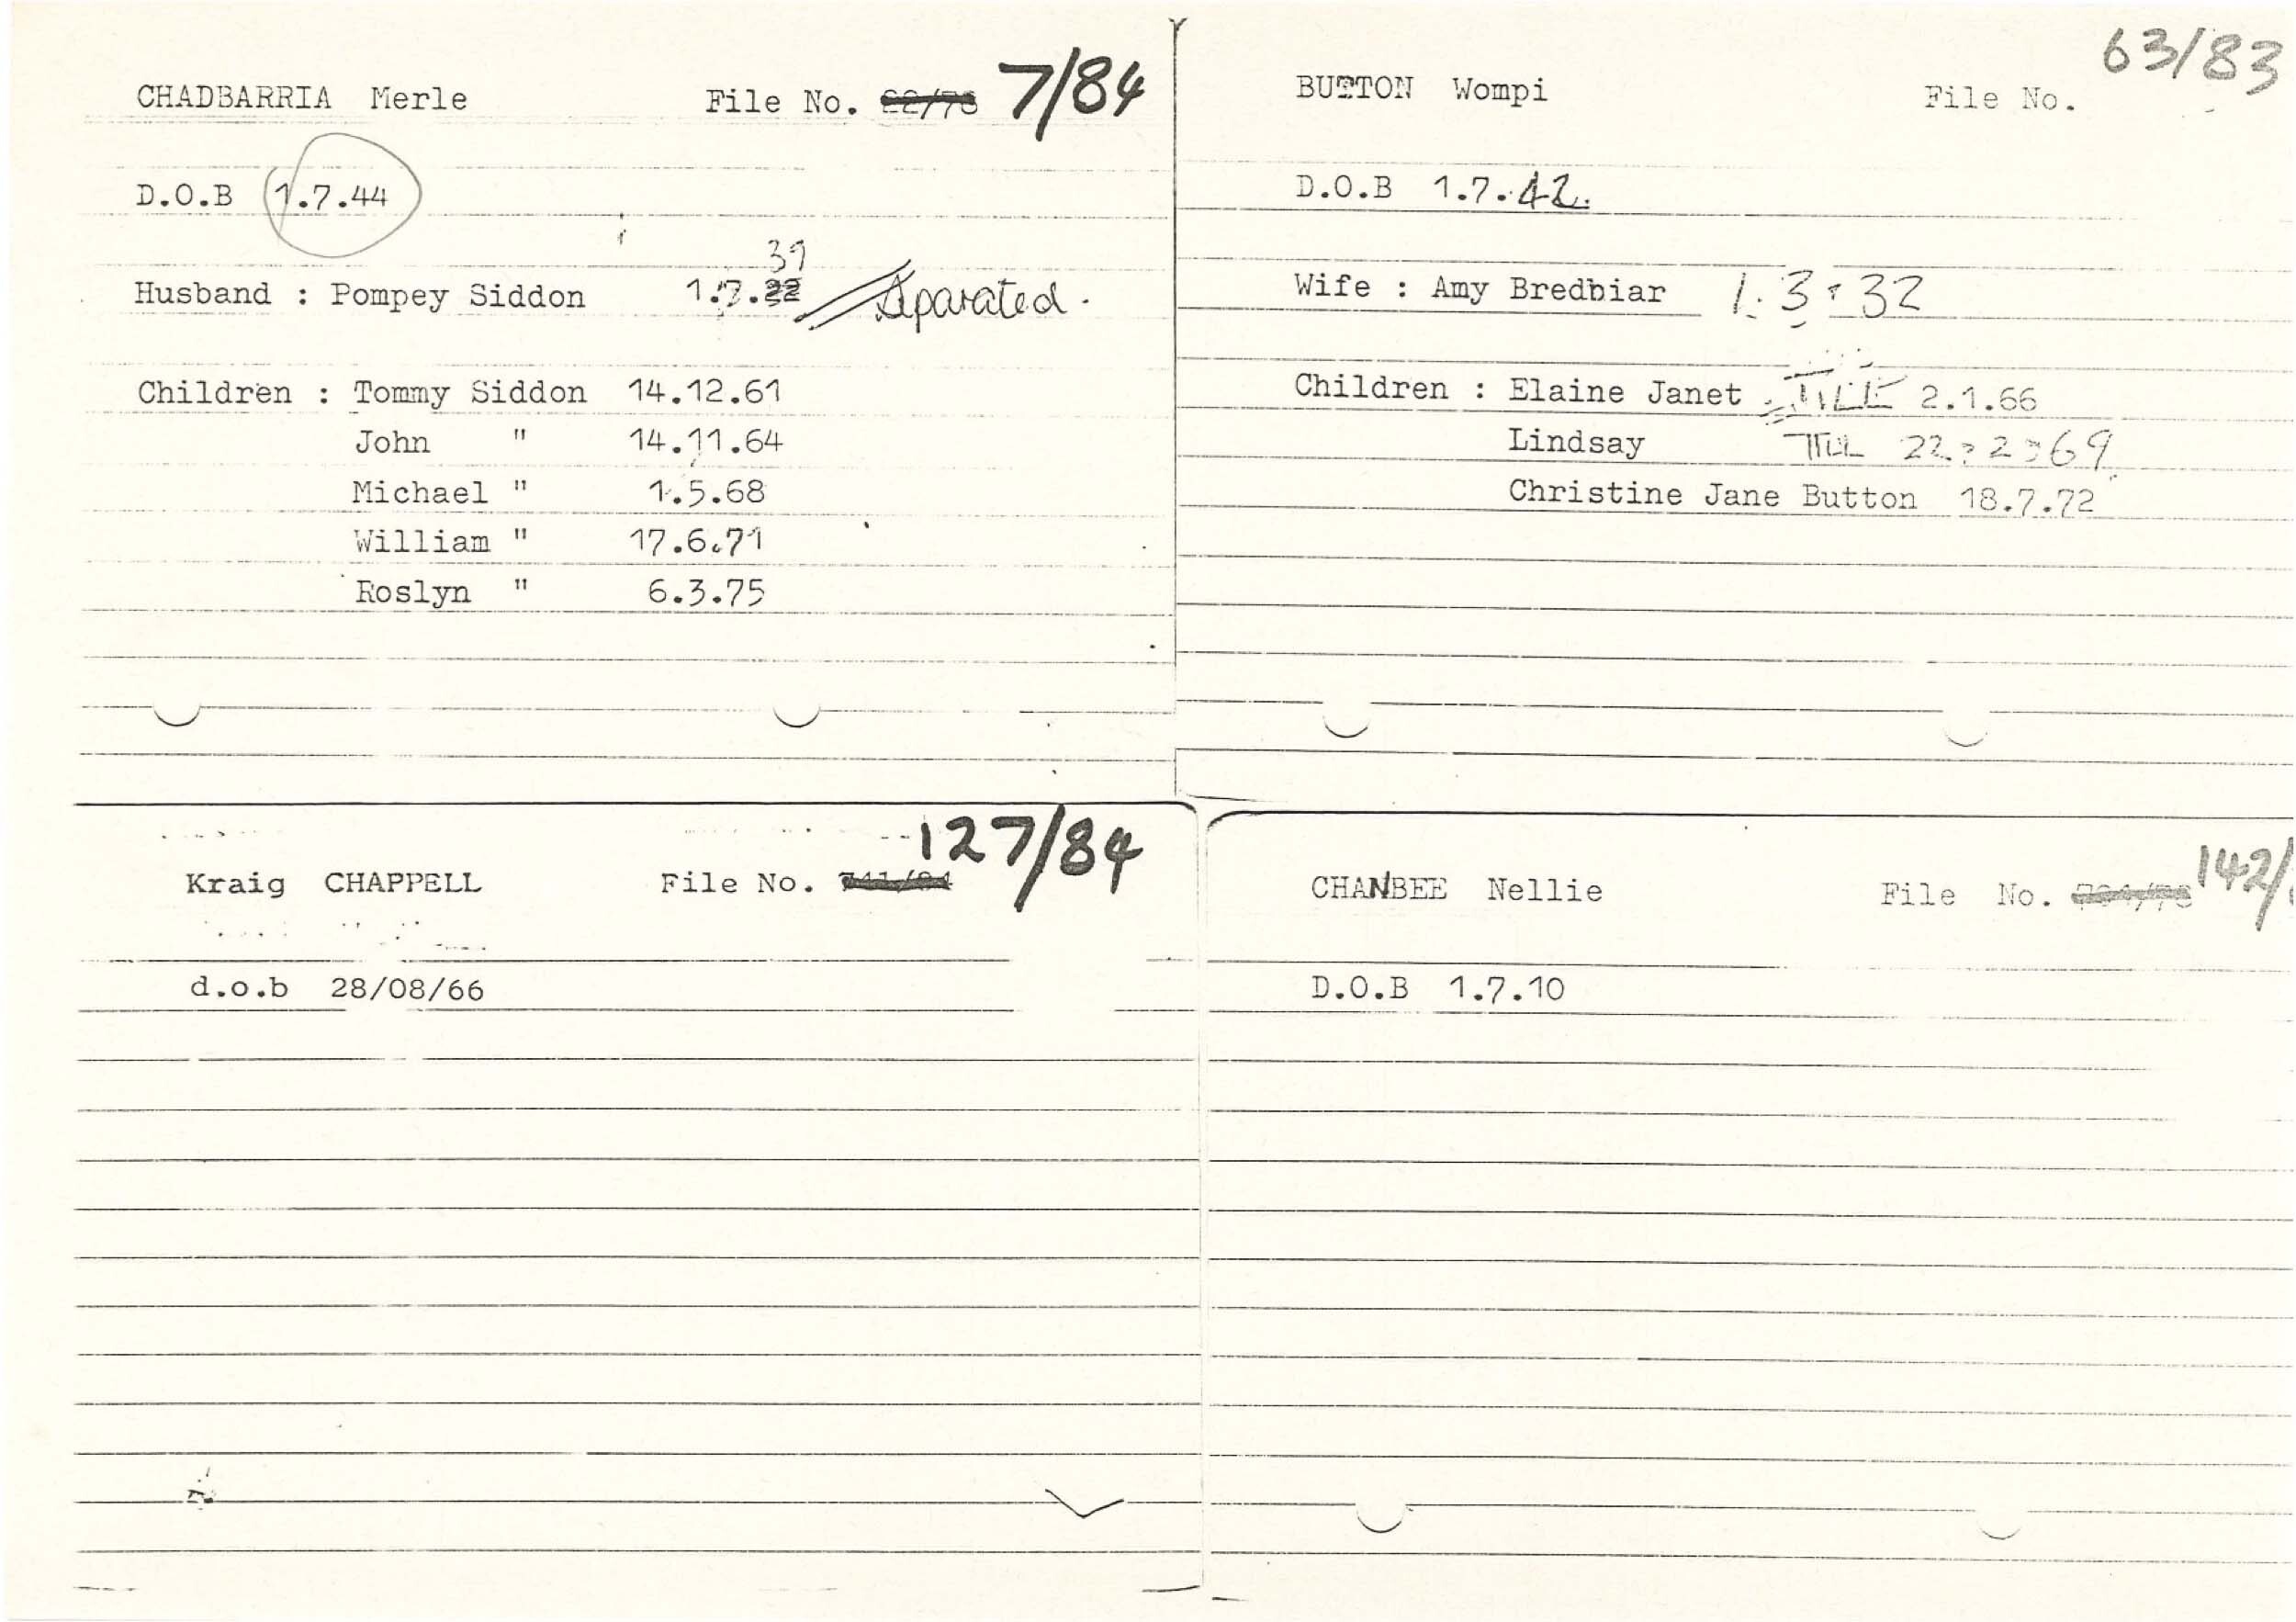 CHADBARRIA Merle File No. 7/84
D.O.B 1.7.44
39
Husband : Pompey Siddon 1.7. Separated.
Children : Tommy Siddon 14.12.61
John " 14.11.64
Michael " 1.5.68
William " 17.6.71
Roslyn " 6.3.75
63/83
BUTTON Wompi File No.
D.O.B 1.7.42.
Wife : Amy Bredbiar 1.3.32
Children : Elaine Janet 2.1.66
Lindsay TILL 22.2.69
Christine Jane Button 18.7.72
127/84
Kraig CHAPPELL File No.
d.o.b 28/08/66
142/
CHANBEE Nellie File No.
D.O.B 1.7.10